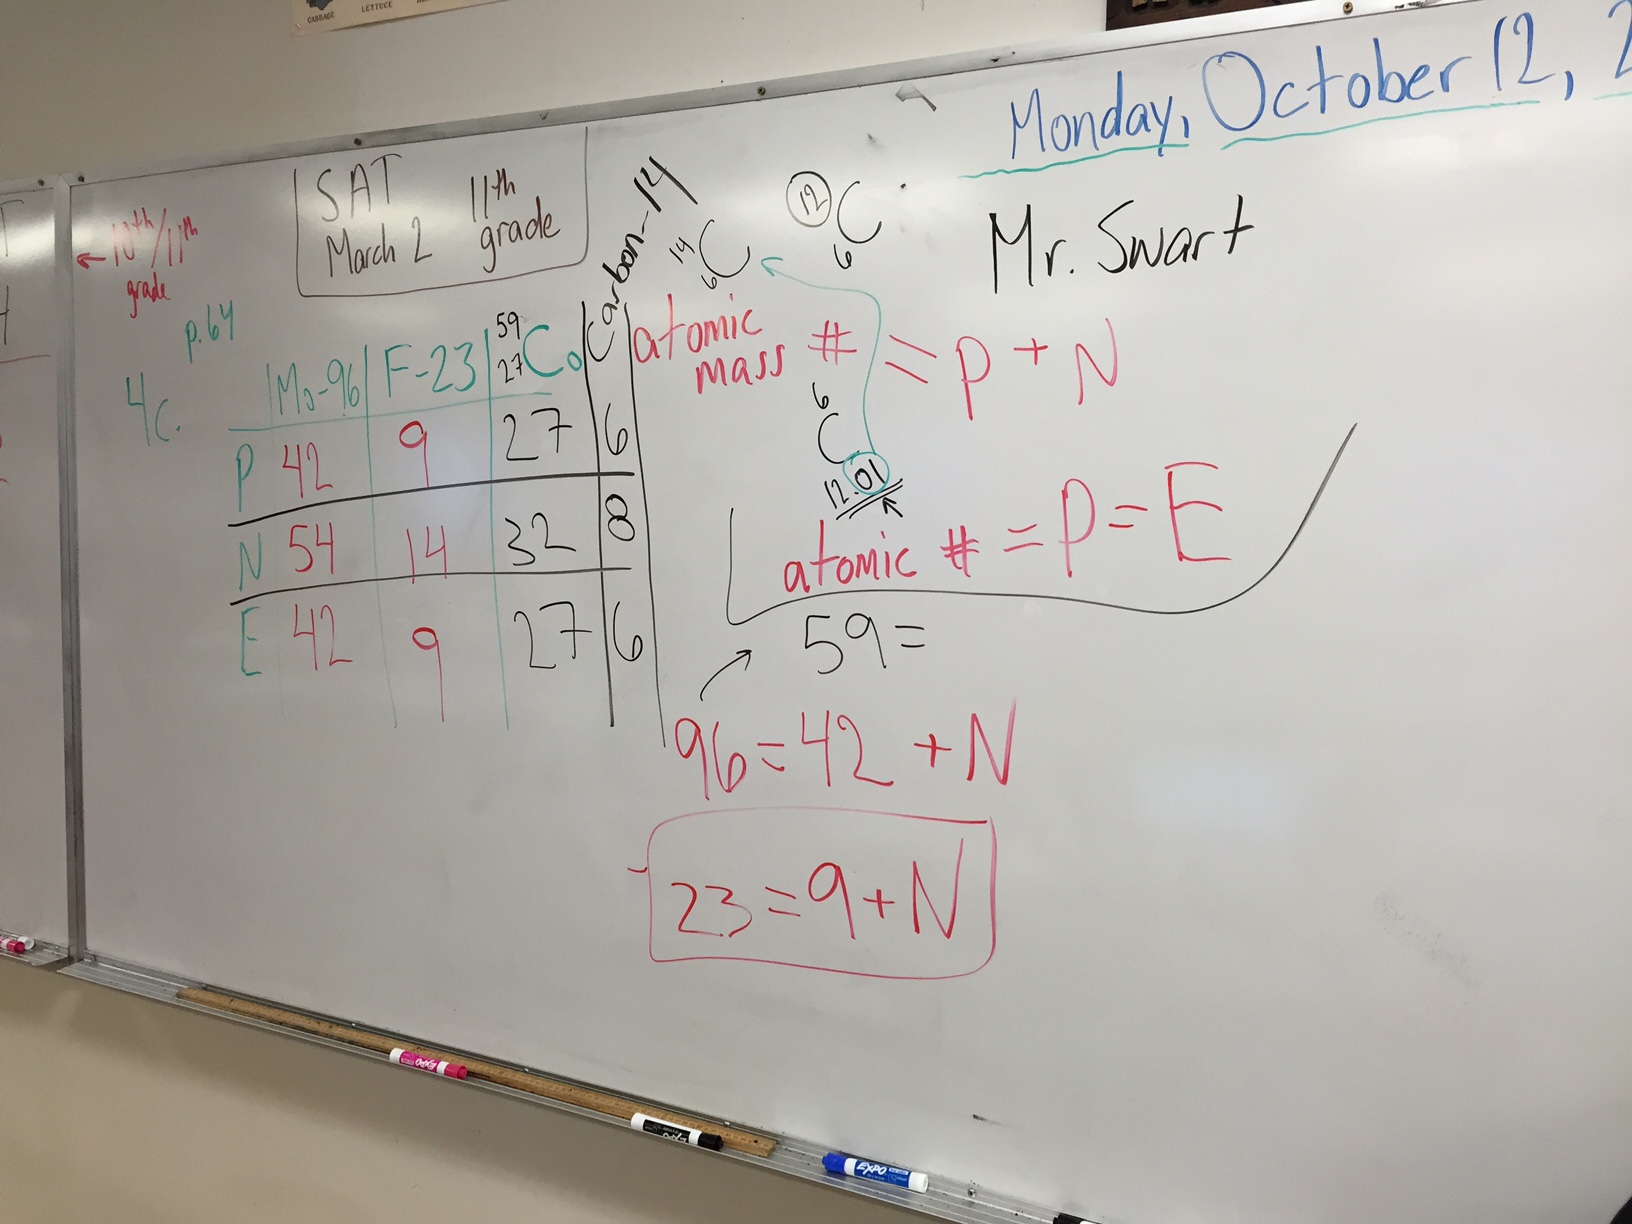 CABBAGE
LETTUCE
Monday, October 12, 2
Mr. Swart
SAT
March 2
11th
grade
10th/11th
grade
p.64
4c.
Mo-96 F-23 59 27 Co Carbon-14
P 42 9 27 6
N 54 14 32 8
E 42 9 27 6
14 6 C
12 6 C
atomic
mass # = P + N
6
C
12.01
atomic # = P = E
59=
96=42 + N
23=9+N
EXPO